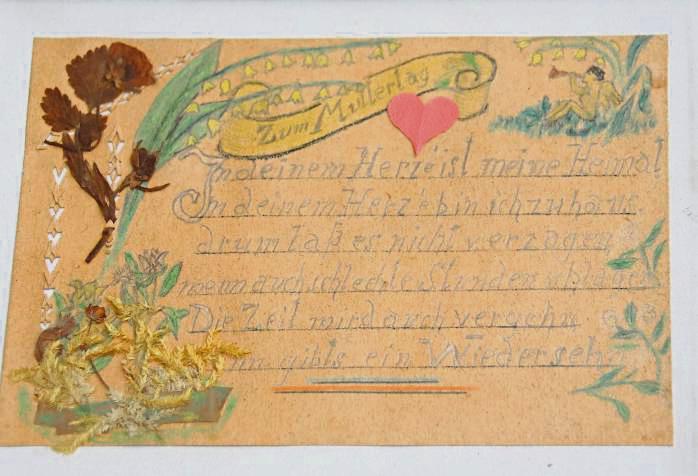 Zum Muttertag
In deinem Herze ist meine Heimat
In deinem Herze bin ich zuhaus
drum laß es nicht verzagen
wenn auch schlechte Stunden
Die Zeit wird auch vergehn
gibts ein Wiedersehn